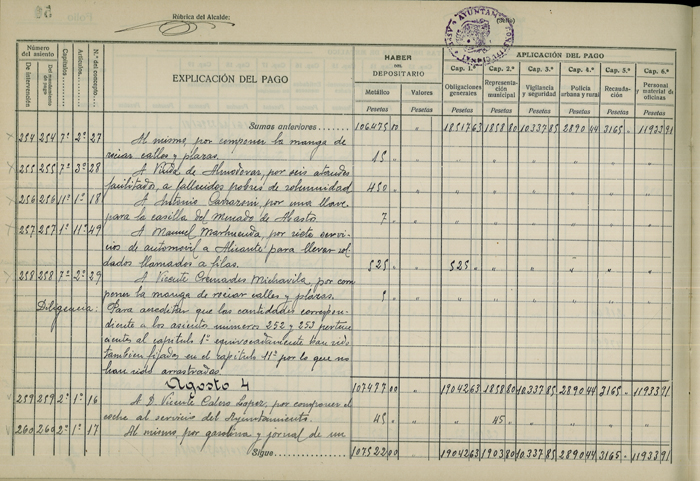 Rúbrica del Alcalde:
Número del asiento
De intervención
Del mandamiento de pago
Capítulos
Artículos
N.º del concepto
EXPLICACIÓN DEL PAGO
HABER DEL DEPOSITARIO
Metálico
Valores
Pesetas
Pesetas
APLICACIÓN DEL PAGO
Cap. 1.º Obligaciones generales Pesetas
Cap. 2.º Representación municipal Pesetas
Cap. 3.º Vigilancia y seguridad Pesetas
Cap. 4.º Policía urbana y rural Pesetas
Cap. 5.º Recaudación Pesetas
Cap. 6.º Personal y material de oficinas Pesetas
Sumas anteriores 106475 00 " 18517 63 1858 80 10.337 85 2890 44 3165 " 11933 91
254 254 7º 2º 27 Al mismo por componer la manga de
rociar calles y plazas. 15 "
255 255 7º 3º 28 A Viuda de Almodovar, por seis ataudes
facilitado, a fallecidos pobres de solemnidad 450 "
256 256 11º 1º 18 A Antonio por una llave
para la casilla del Mercado de Abasto 7 "
257 257 1º 11º 49 A Manuel Marhuenda, por siete servi-
cios de automovil a Alicante para llevar sol
dados llamados a filas. 525 " 525 "
258 258 7º 2º 29 A Vicente Cremades Michavila, por com
poner la manga de rociar calles y plazas. 5 "
Diligencia: Para acreditar que las cantidades correspon-
diente a los asientos numeros 252 y 253 pertene
cientes al capitulo 1º equivocadamente han sido
tambien fijadas en el capitulo 11º por lo que no
han sido arrastradas.
Agosto 4 107477 00 " 19042 63 1858 80 10.337 85 2890 44 3165 " 11933 91
259 259 2º 1º 16 A D. Vicente Calero Lopez, por componer el
coche al servicio del Ayuntamiento. 45 " " 45 "
260 260 2º 1º 17 Al mismo, por gasolina y jornal de un
Sigue 107522 00 " 19042 63 1903 80 10.337 85 2890 44 3165 " 11933 91